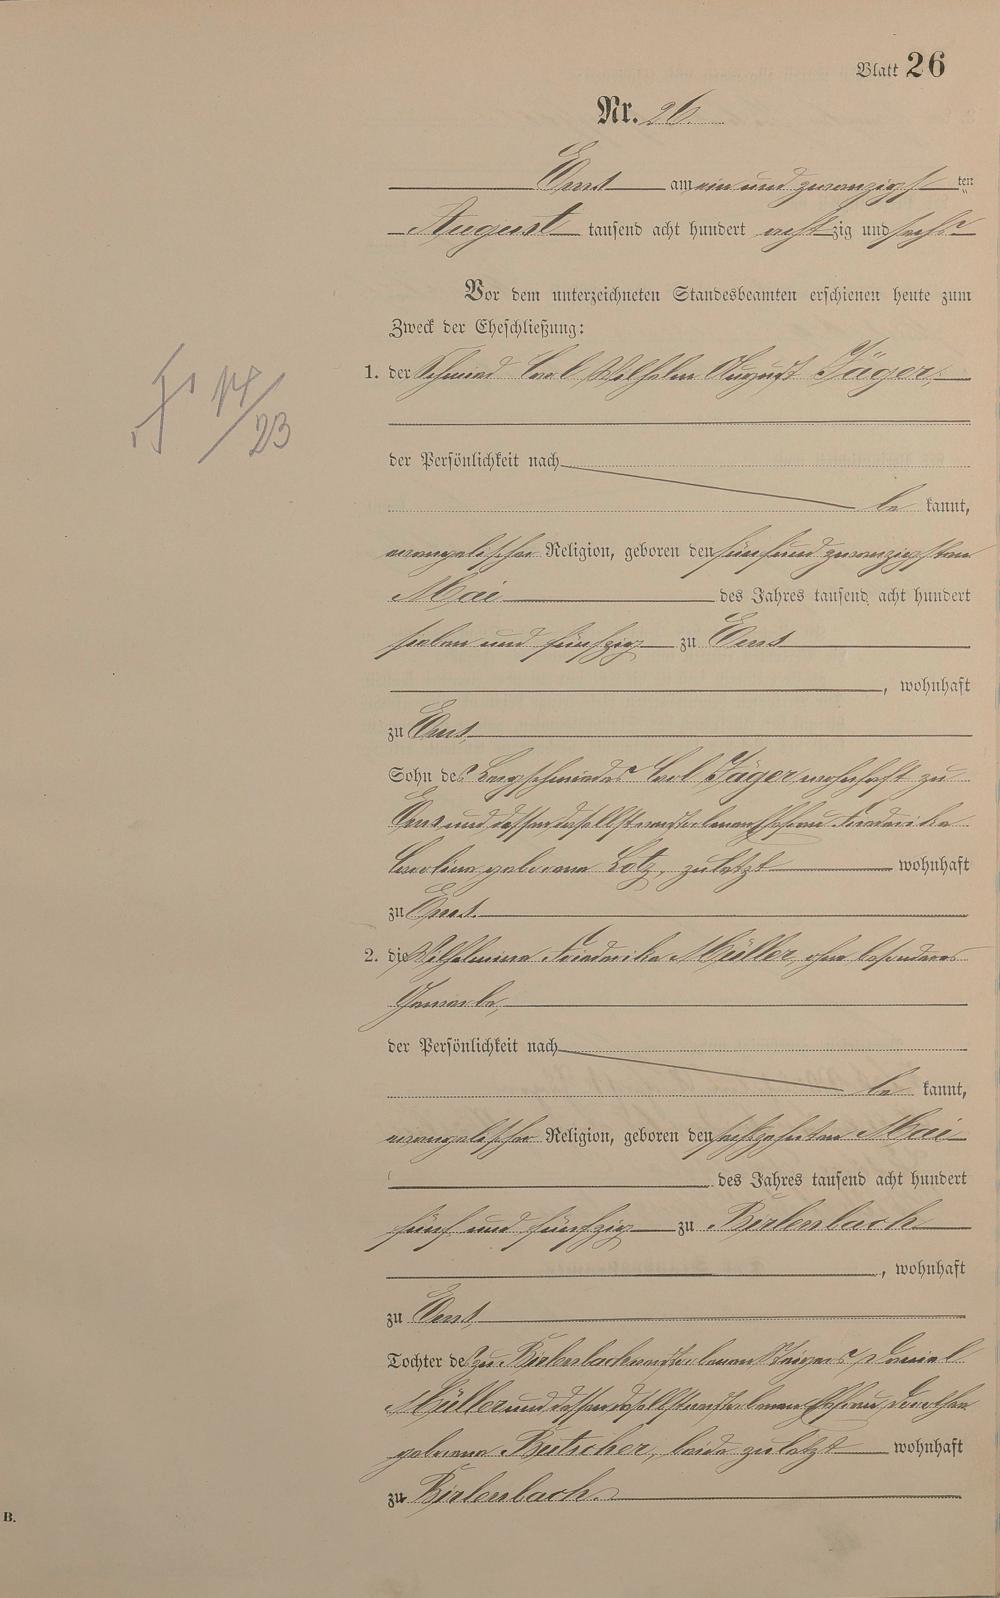 Blatt 26
Nr. 26.
Ems am ein und zwanzigsten
August tausend acht hundert achtzig und sechs
Vor dem unterzeichneten Standesbeamten erschienen heute zum
Zweck der Eheschließung:
1. der Schmied Carl Wilhelm August Jäger,
der Persönlichkeit nach
be kannt,
evangelischer Religion, geboren den fünfund zwanzigsten
Mai des Jahres tausend acht hundert
sieben und fünfzig zu Ems
, wohnhaft
zu Ems,
Sohn des Bergschmiedes Carl Jäger, wohnhaft zu
Ems und dessen daselbst verstorbenen Ehefrau Friederike
Caroline geborene Lotz, zuletzt wohnhaft
zu Ems.
2. die Wilhelmine Friederike Müller, ohne besonderes
Gewerbe,
der Persönlichkeit nach
be kannt,
evangelischer Religion, geboren den sechszehnten Mai
des Jahres tausend acht hundert
fünf und fünfzig zu Birlenbach
, wohnhaft
zu Ems,
Tochter des zu Birlenbach verstorbenen Steigers Daniel
Müller und dessen daselbst verstorbenen Ehefrau, Dorothea
geborene Beitscher, beide zuletzt wohnhaft
zu Birlenbach.
B.